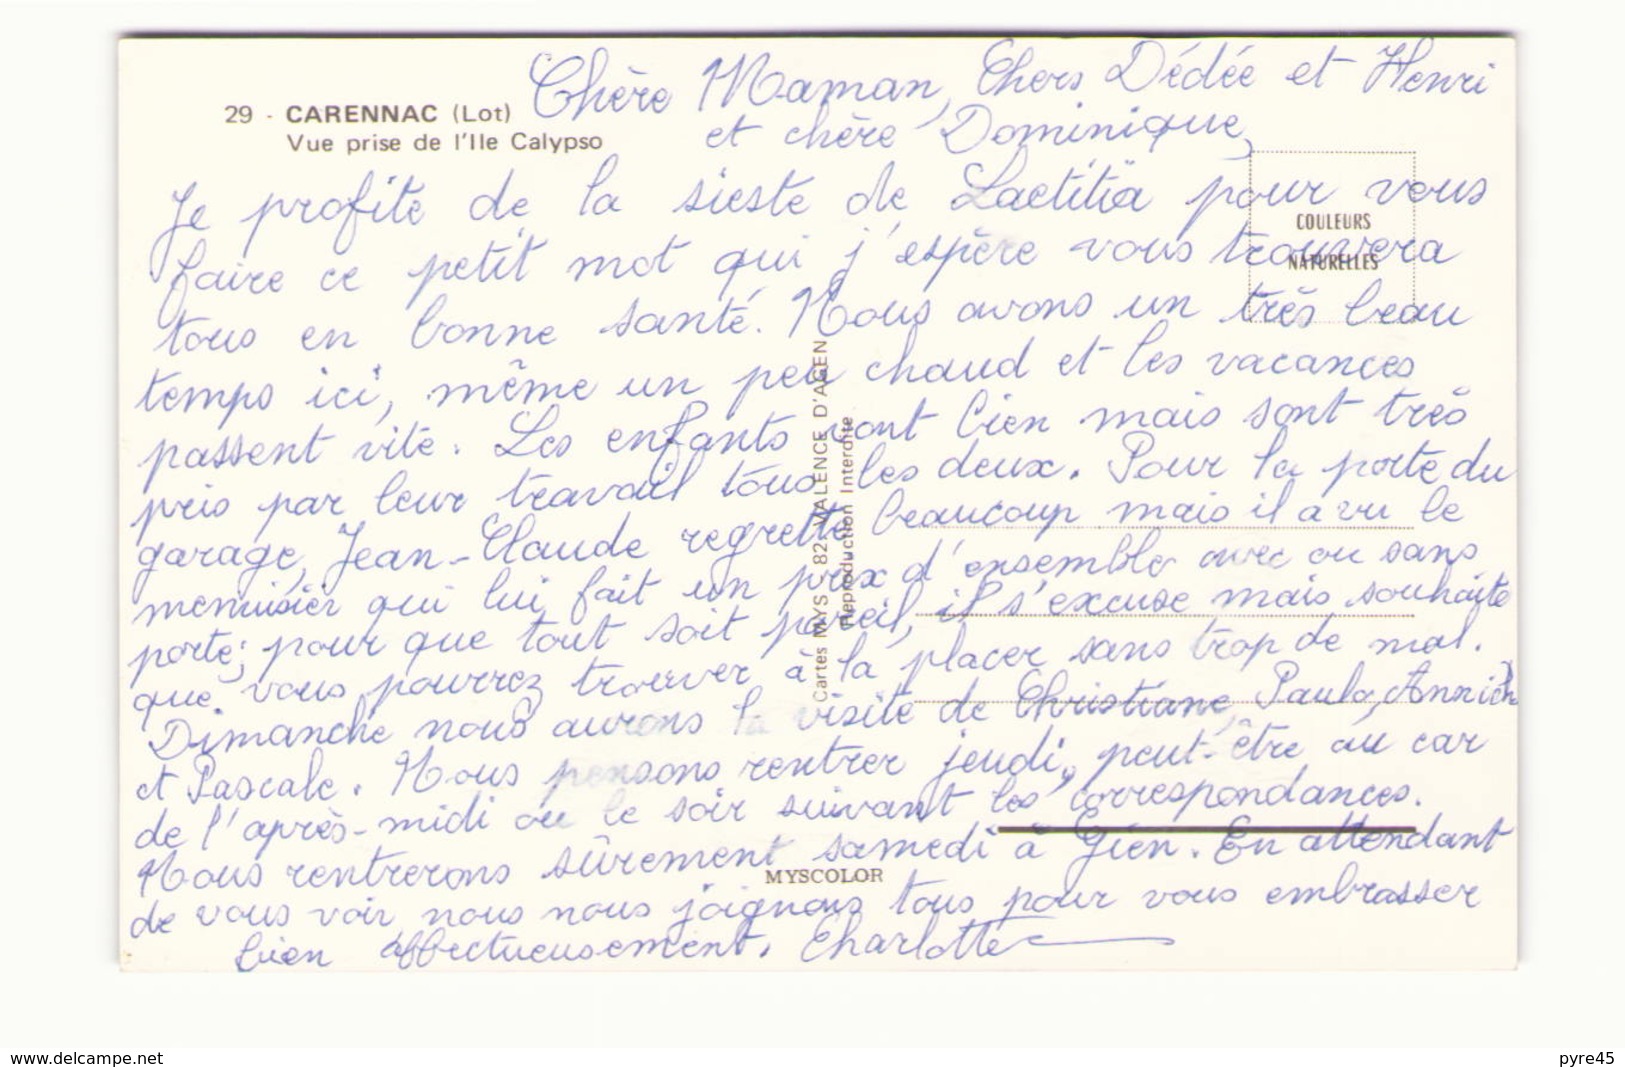 29 - CARENNAC (Lot)
Vue prise de l'Ile Calypso
Chère Maman, Chers Dédée et Henri
et chère Dominique,
Je profite de la sieste de Laetitia pour vous
faire ce petit mot qui j'espère vous trouvera
tous en bonne santé. Nous avons un très beau
temps ici, même un peu chaud et les vacances
passent vite. Les enfants vont bien mais sont très
pris par leur travail tous les deux. Pour la porte du
garage, Jean-Claude regrette beaucoup mais il a vu le
menuisier qui lui fait un prix d'ensemble avec ou sans
porte; pour que tout soit pareil, il s'excuse mais souhaite
que vous pourrez trouver à la placer sans trop de mal.
Dimanche nous aurons la visite de Christiane, Paulo, Annick
et Pascale. Nous pensons rentrer jeudi, peut-être au car
de l'après-midi ou le soir suivant les correspondances.
Nous rentrerons sûrement samedi à Gien. En attendant
de vous voir, nous nous joignons tous pour vous embrasser
bien affectueusement. Charlotte
COULEURS
NATURELLES
Cartes MYS - 82 - VALENCE D'AGEN
Reproduction Interdite
MYSCOLOR
www.delcampe.net
pyre45